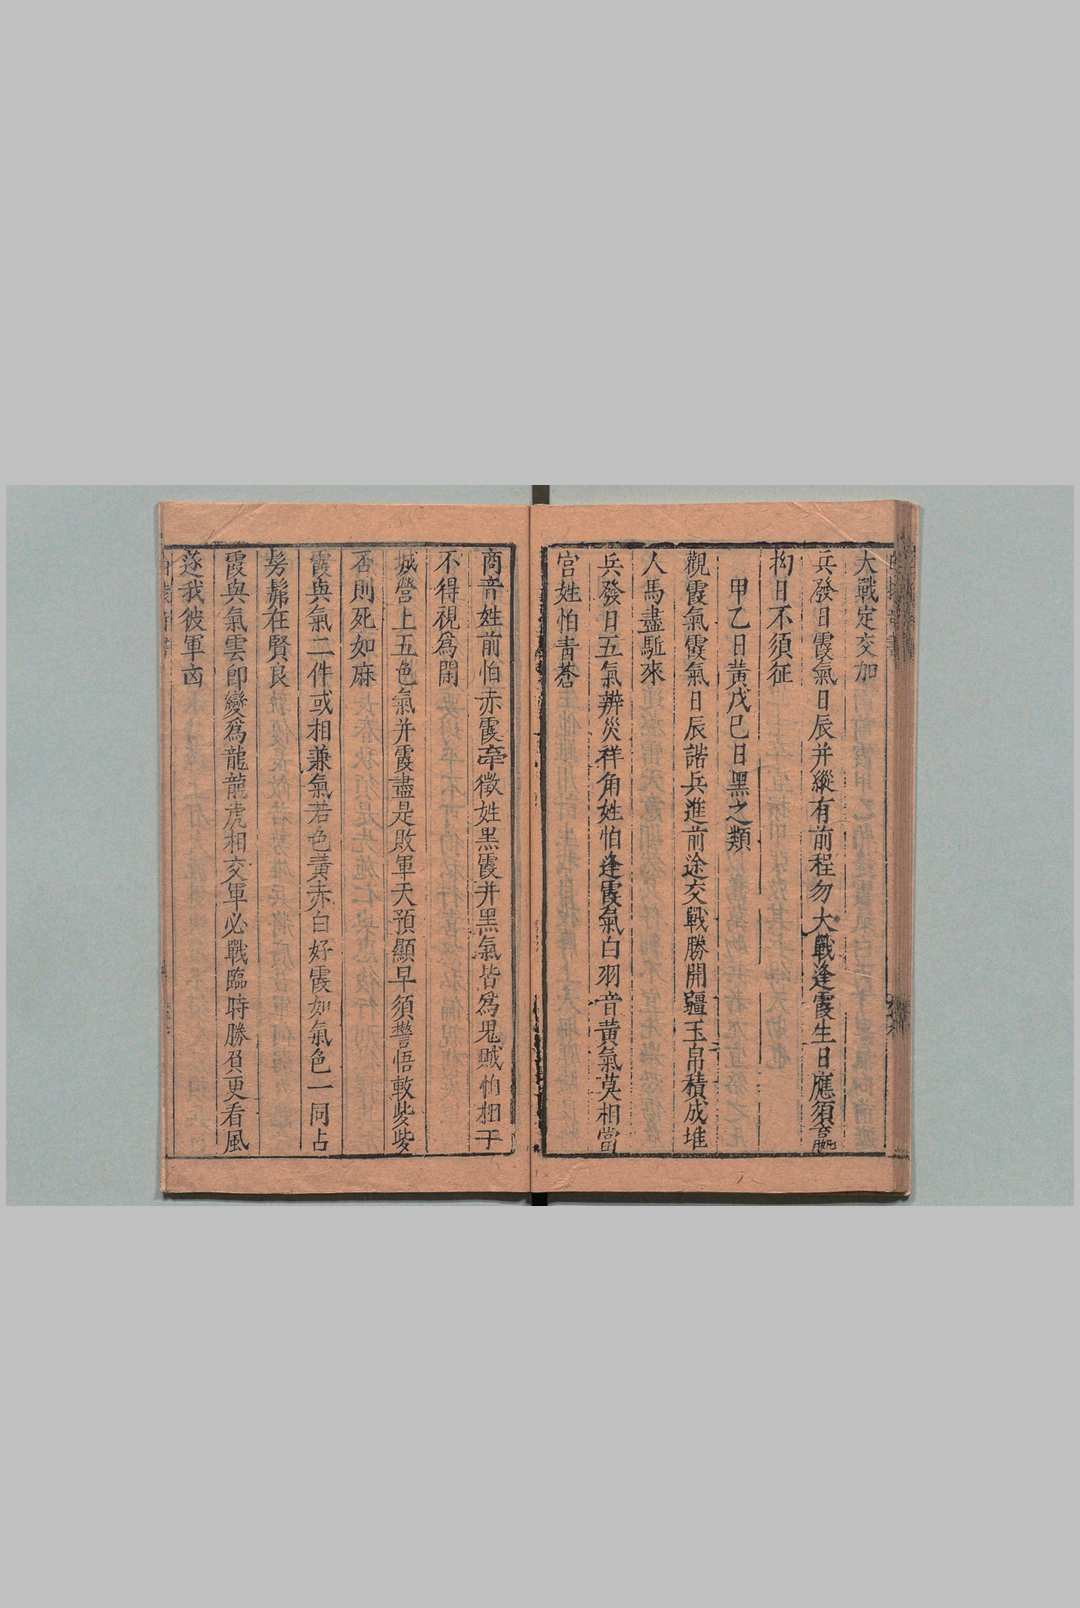 大戰定交加
兵發日霞氣日辰并縱有前程勿大戰逢霞生日應須贏
拘日不須征
甲乙日黃戊巳日黑之類
觀霞氣霞氣日辰諧兵進前途交戰勝開疆玉帛積成堆
人馬盡䢐來
兵發日五氣辨災祥角姓怕逢霞氣白羽音黃氣莫相當
宮姓怕青蒼
商音姓前怕赤霞牽徵姓黑霞并黑氣皆為鬼賊怕相干
不得視為閑
城營上五色氣并霞盡是敗軍天預顯早須警悟較些些
否則死如麻
霞與氣二件或相兼氣若色黃赤白好霞如氣色一同占
髣髴在賢良
霞與氣雲即變為龍龍虎相交軍必戰臨時勝負更看風
逐我彼軍凶